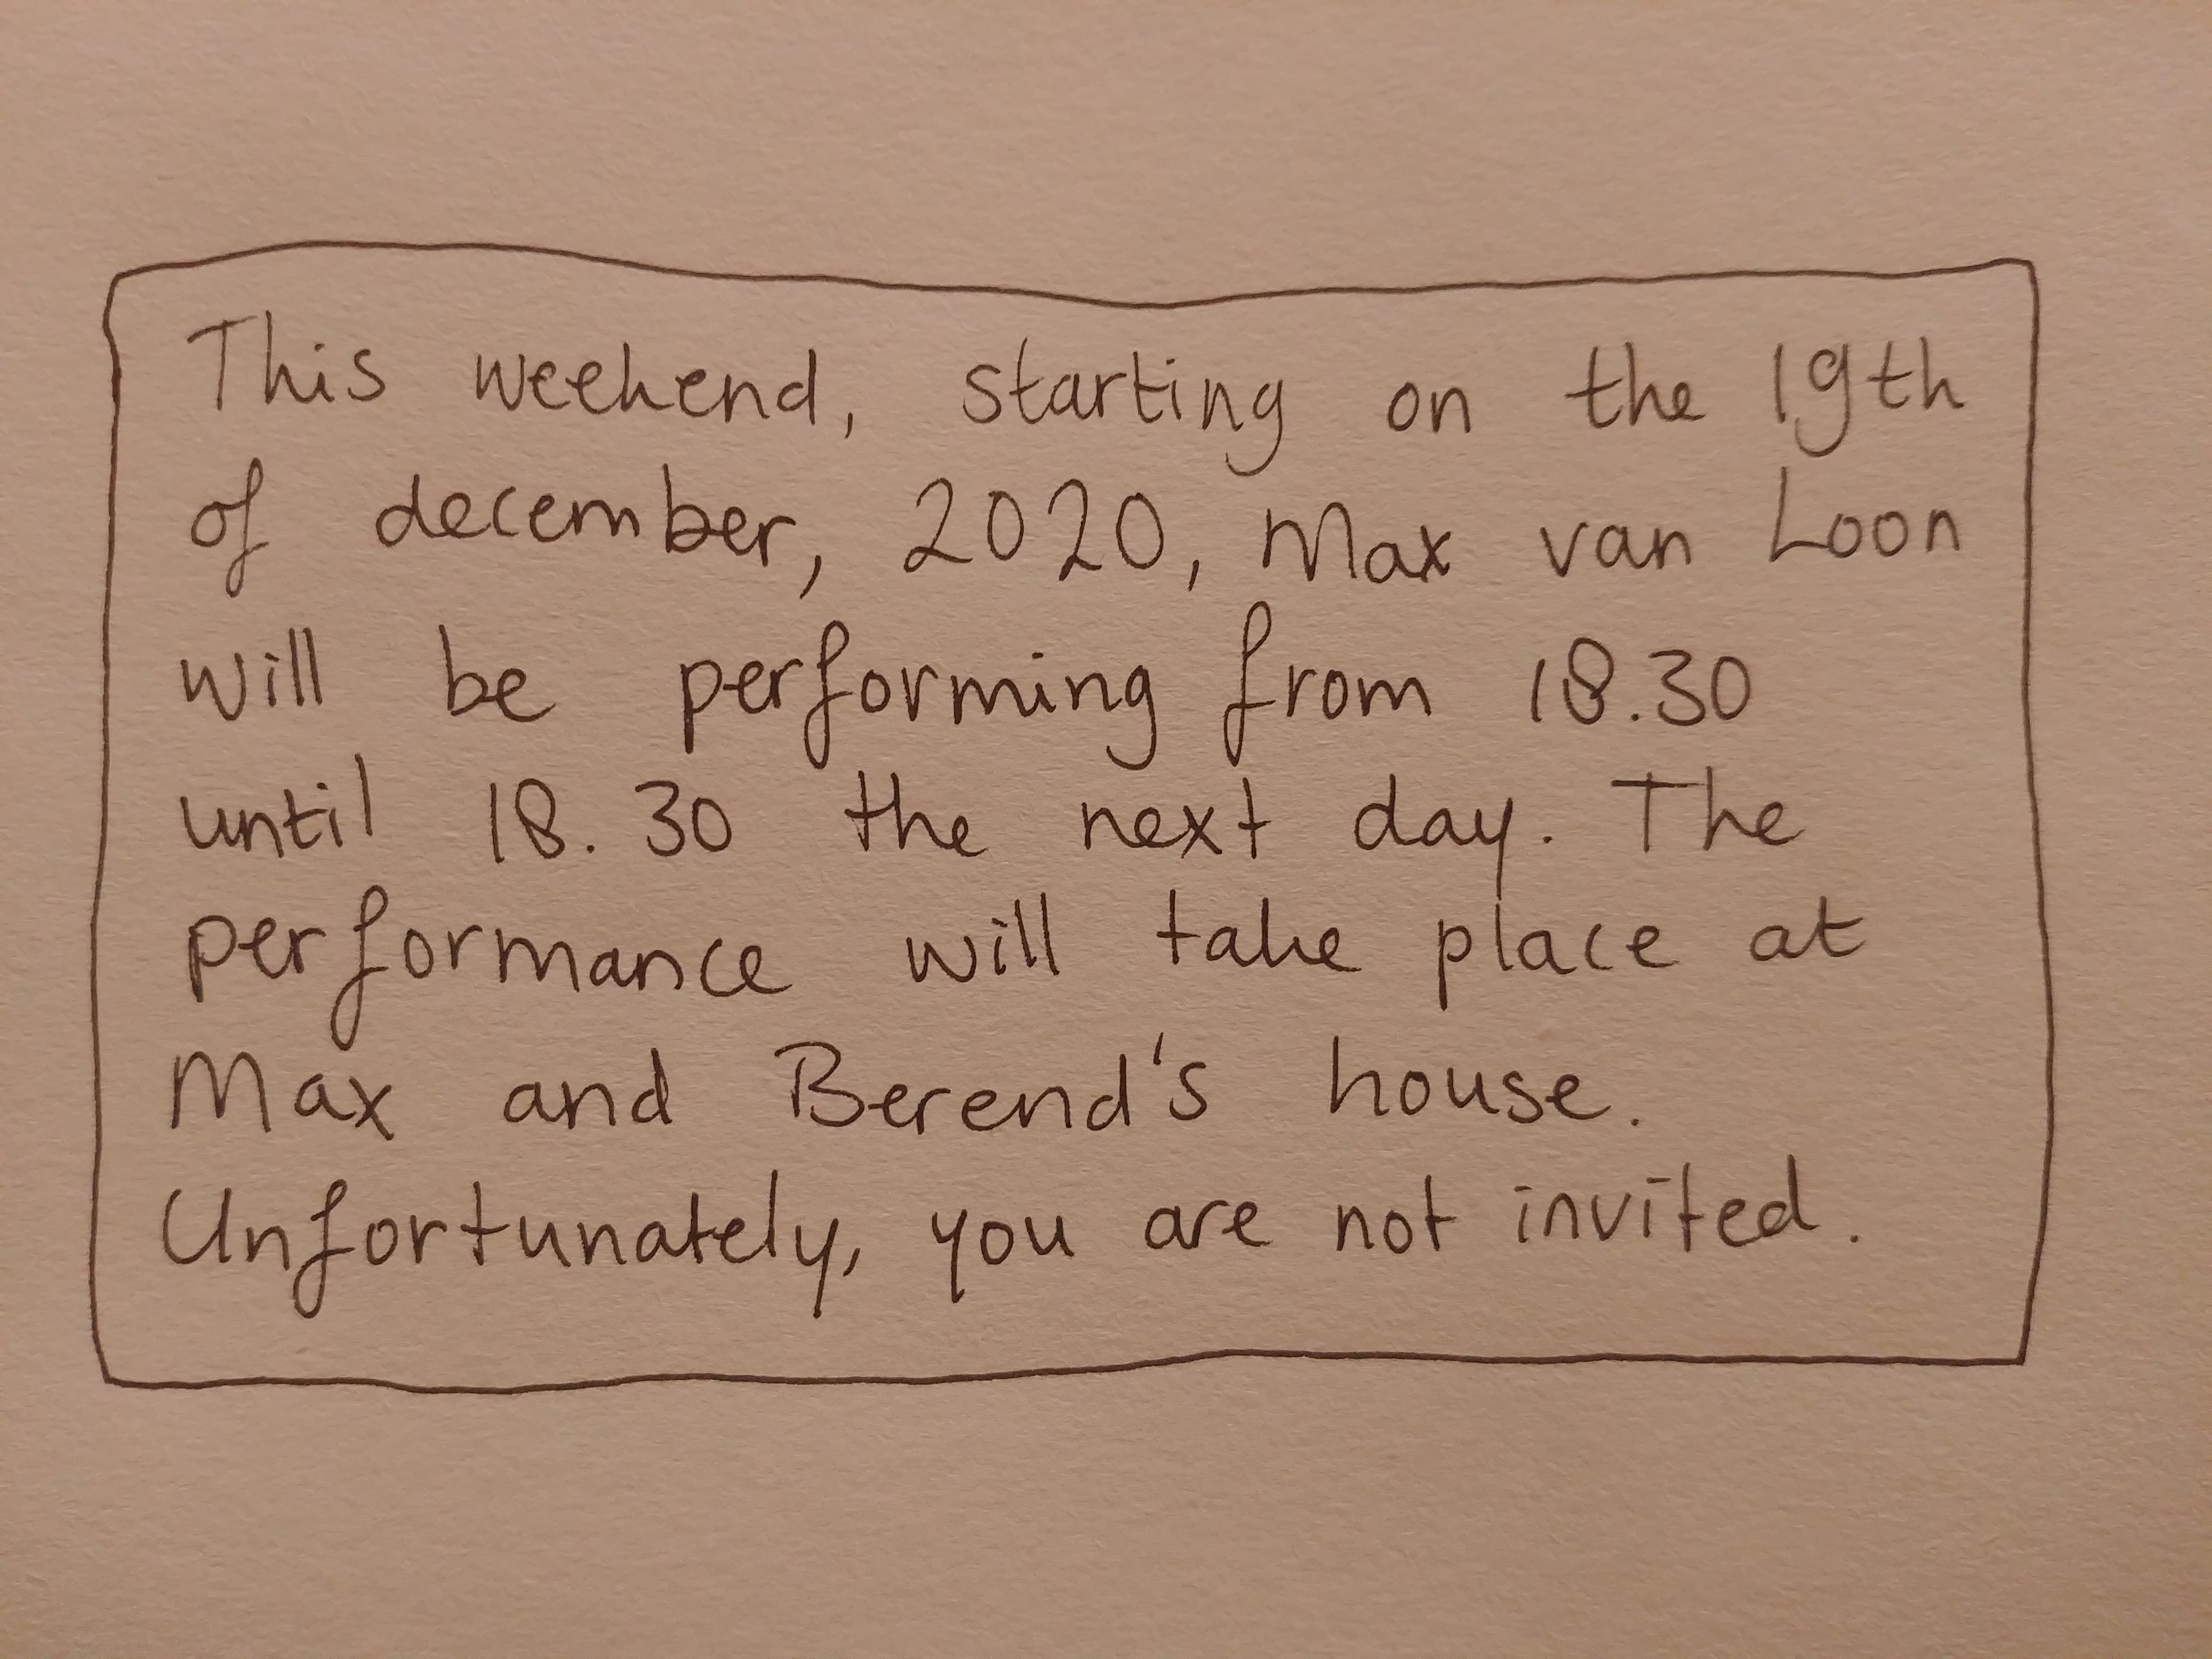 This weekend, starting on the 19th
of december, 2020, Max van Loon
will be performing from 18.30
until 18.30 the next day. The
performance will take place at
Max and Berend's house.
Unfortunately, you are not invited.